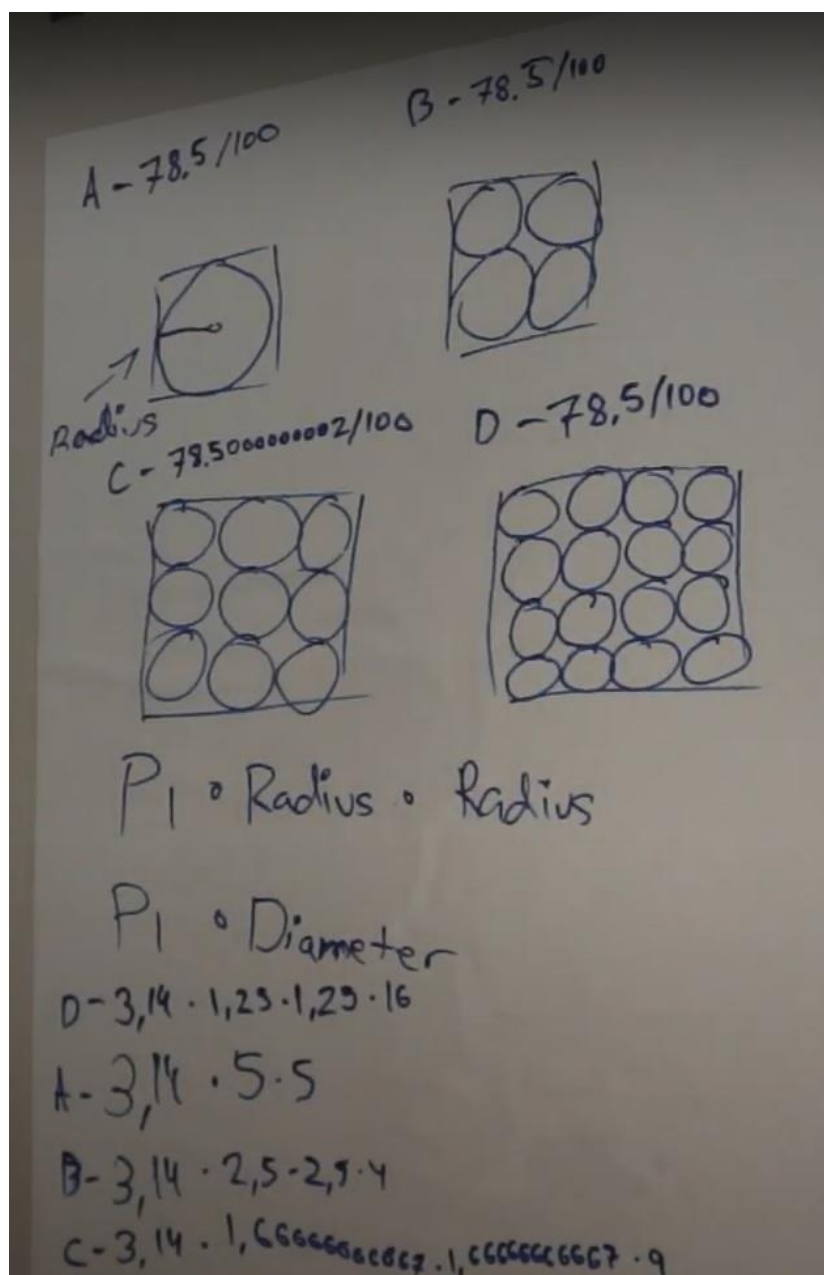 A - 78.5/100
B - 78.5/100
Radius
C - 78.5000000002/100
D - 78.5/100
Pi • Radius • Radius
Pi • Diameter
D - 3,14 · 1,25 · 1,25 · 16
A - 3,14 · 5 · 5
B - 3,14 · 2,5 · 2,5 · 4
C - 3,14 · 1,66666666667 · 1,66666666667 · 9